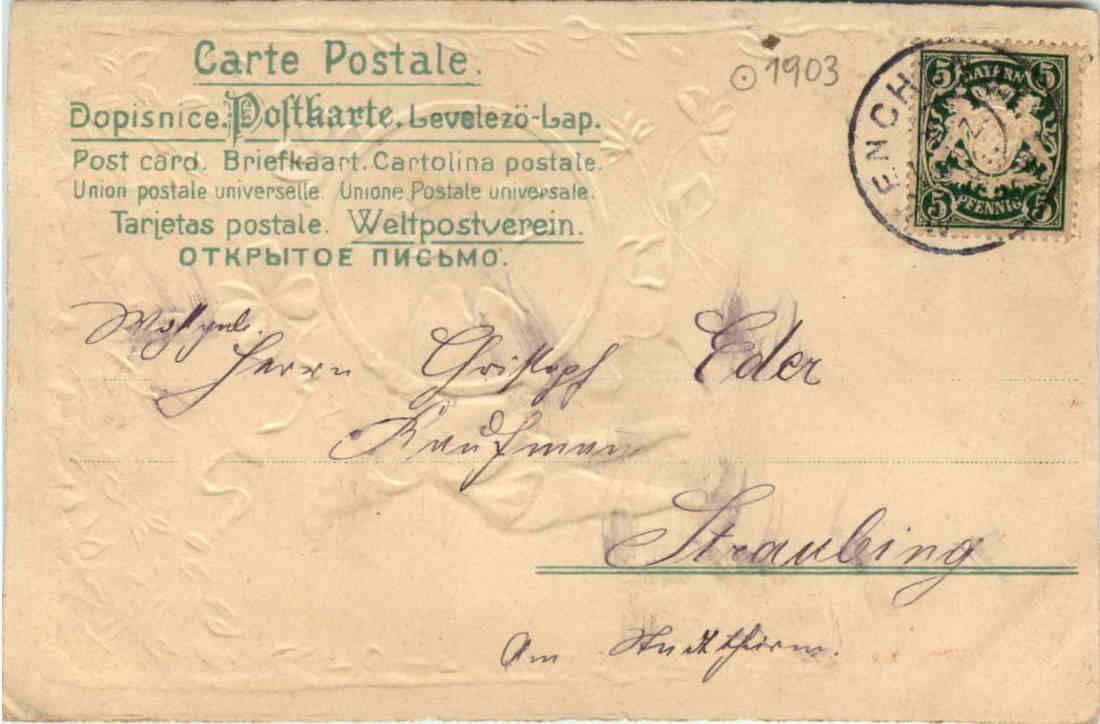 Carte Postale.
⨀ 1903
Dopisnice. Postkarte. Levelezö-Lap.
Post card. Briefkaart. Cartolina postale.
Union postale universelle. Unione Postale universale.
Tarjetas postale. Weltpostverein.
ОТКРЫТОЕ ПИСЬМО.
5 BAYERN 5
5 PFENNIG 5
ENCH
Herrn Christoph Eder
Kaufmann
Straubing
Am Stadtthurm.